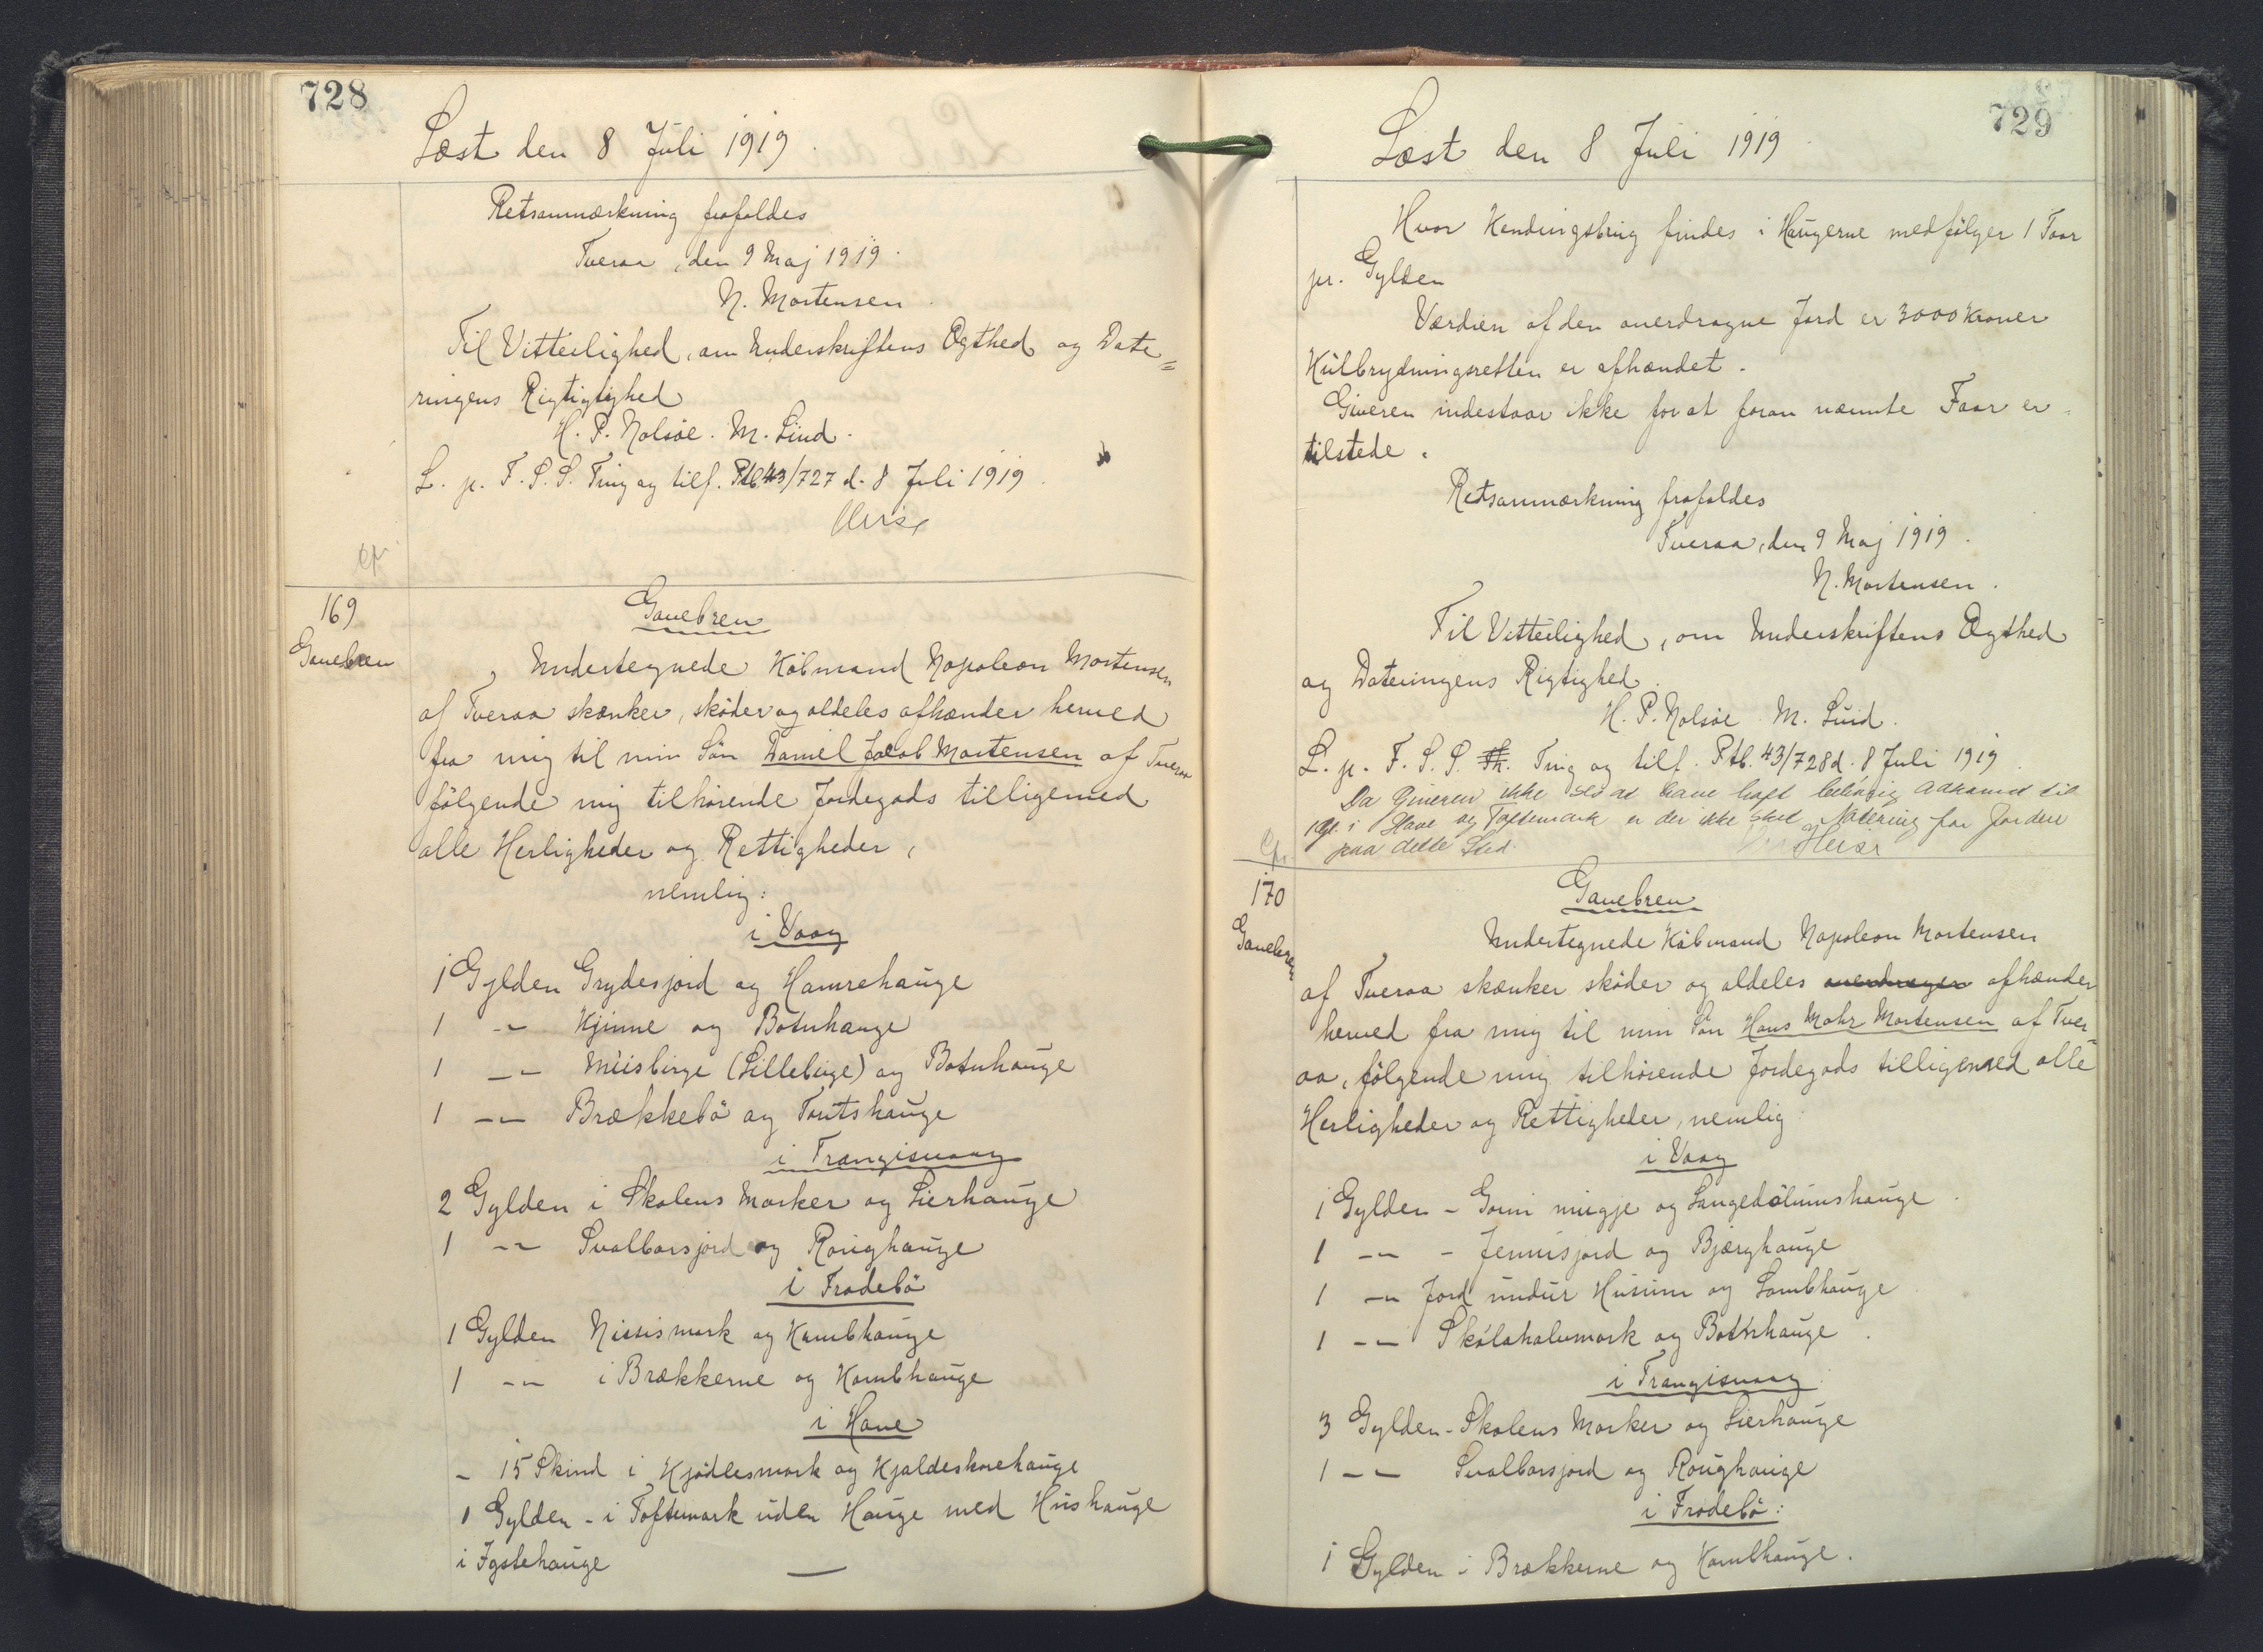 728
Læst den 8 Juli 1919.
Retsanmærkning frafaldes
Tveraa, den 9 Maj 1919.
N. Mortensen
Til Vitterlighed, om Underskriftens Ægthed og Date=
ringens Rigtigtighed
H. P. Nolsöe. M. Lind.
L. p. F. S. S. Ting og tilf. Ptb. 43/727 d. 8 Juli 1919.
Heise
Cfr
169
Gavebrev
Gavebrev
Undertegnede Købmand Napoleon Mortensen
af Tveraa skænker, skøder og aldeles afhænder herved
fra mig til min Sön Daniel Jacob Mortensen af Tveraa
følgende mig tilhørende Jordegods tilligemed
alle Herligheder og Rettigheder,
nemlig:
i Vaag
1 Gylden Grydesjord og Hamrehauge
1 -"- Kjinne og Botnhauge
1 -"- Müsbirge (Lillebirge) og Botnhauge
1 -"- Brækkebö og Toutshauge
i Trangisvaag
2 Gylden i Skolens Marker og Lierhauge
1 -"- Svalbarsjord og Roughauge
i Frodebö
1 Gylden Nissismark og Kambhauge
1 -"- i Brækkerne og Kambhauge
i Hove
- 15 Skind i Kjødlesmark og Kjaldeskorehauge
1 Gylden - i Toftemark uden Hauge med Hushauge
i Igstehauge
729
Læst den 8 Juli 1919.
Hvor Kendingsbrug findes i Haugerne medfølger 1 Faar
pr. Gylden
Værdien af den overdragne Jord er 3000 Kroner
Kulbrydningsretten er afhændet.
Giveren indestaar ikke for at foran nævnte Faar er
tilstede.
Retsanmærkning frafaldes
Tveraa, den 9 Maj 1919.
N. Mortensen.
Til Vitterlighed, om Underskriftens Ægthed
og Dateringens Rigtighed.
H. P. Nolsöe M. Lind.
L. p. F. S. S. Th. Ting og tilf. Ptb. 43/728 d. 8 Juli 1919.
Da Giveren ikke ses at have haft behørig Adkomst til
1 Gl. i Hove og Toftemark er der ikke sket Notering for Jorden
paa dette Sted.
Heise
Cfr.
170
Gavebrev
Gavebrev
Undertegnede Købmand Napoleon Mortensen
af Tveraa skænker skøder og aldeles overdrager afhænder
herved fra mig til min Sön Hans Mohr Mortensen af Tver
aa, følgende mig tilhørende Jordegods tilligemed alle
Herligheder og Rettigheder, nemlig:
i Vaag
1 Gylden - Gorm mügje og Langedölumshauge.
1 -"- - Jennisjord og Bjærghauge
1 -"- Jord undur Husum og Lambhauge
1 -"- Skólahalvmark og Botnhauge.
i Trangisvaag
3 Gylden - Skolens Marker og Lierhauge
1 -"- Svalbarsjord og Roughauge
i Frodebö:
1 Gylden i Brækkerne og Kambhauge.